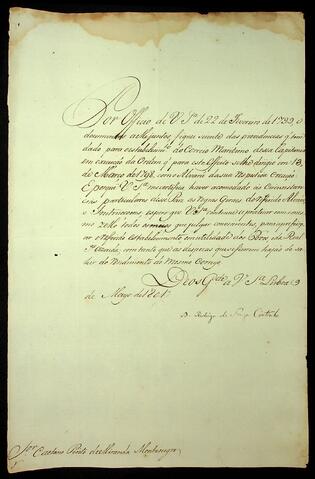 Por Officio de V. S.ª de 22 de Fevereiro de 1799, e
documentos a elle juntos, fiquei sciente das providencias q̃ tem
dado para estabelecim.to do Correio Maritimo dessa Capitania
em execução da Ordem q̃ para este Effeito se lhe dirigio em 13
de Março de 1798, com o Alvará da sua
E porque V. S.ª me certifica haver accomodado ás Circumstan-
cias particulares desse Pais as Regras Geraes do referido Alvará,
e Instrucçoens espero que V. S.ª continue a praticar com o mes-
mo zelo todos os meios que julgar convenientes, para aperfeiçoar
o referido Estabelecimento em utilidade dos Povos, e da Real
Fazenda, com tanto que as despezas que se fizerem hajaõ de sa-
hir do Rendimento do mesmo Correyo.
Deos G.de a V. S.ª Lisboa 9
de Mayo de 1801.
D. Rodrigo de Souza Coutinho
Snr. Caetano Pinto de Miranda Montenegro